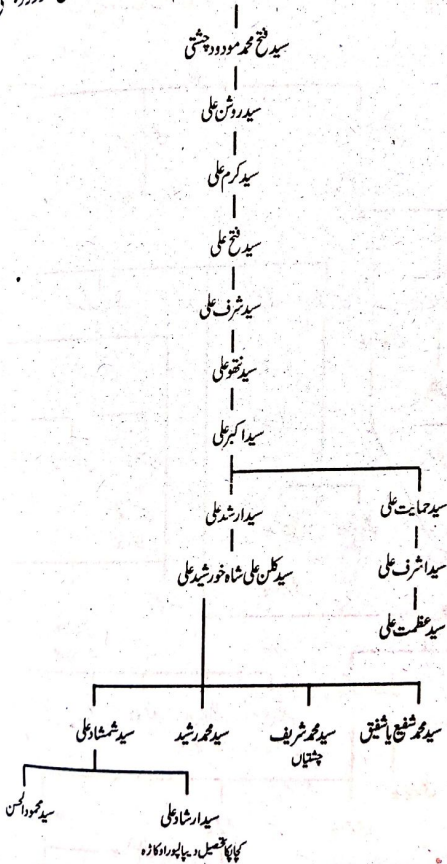 سید فتح محمد مودود چشتی
سید روشن علی
سید کرم علی
سید فتح علی
سید شرف علی
سید نتھو علی
سید اکبر علی
سید حمایت علی
سید ارشد علی
سید اشرف علی
سید کلن علی شاہ خورشید علی
سید عظمت علی
سید محمد شفیع یا شفیق
سید محمد شریف
چشتیاں
سید محمد رشید
سید شمشاد علی
سید ارشاد علی
سید محمود الحسن
کچا پکا تحصیل دیپالپور اوکاڑہ